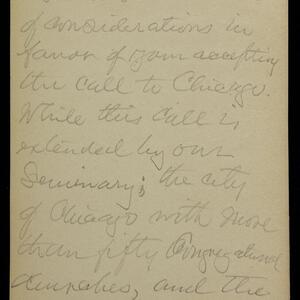 of considerations in
favor of your accepting
the call to Chicago.
While this call is
extended by our
Seminary; the city
of Chicago with more
than fifty Congregational
churches, and the